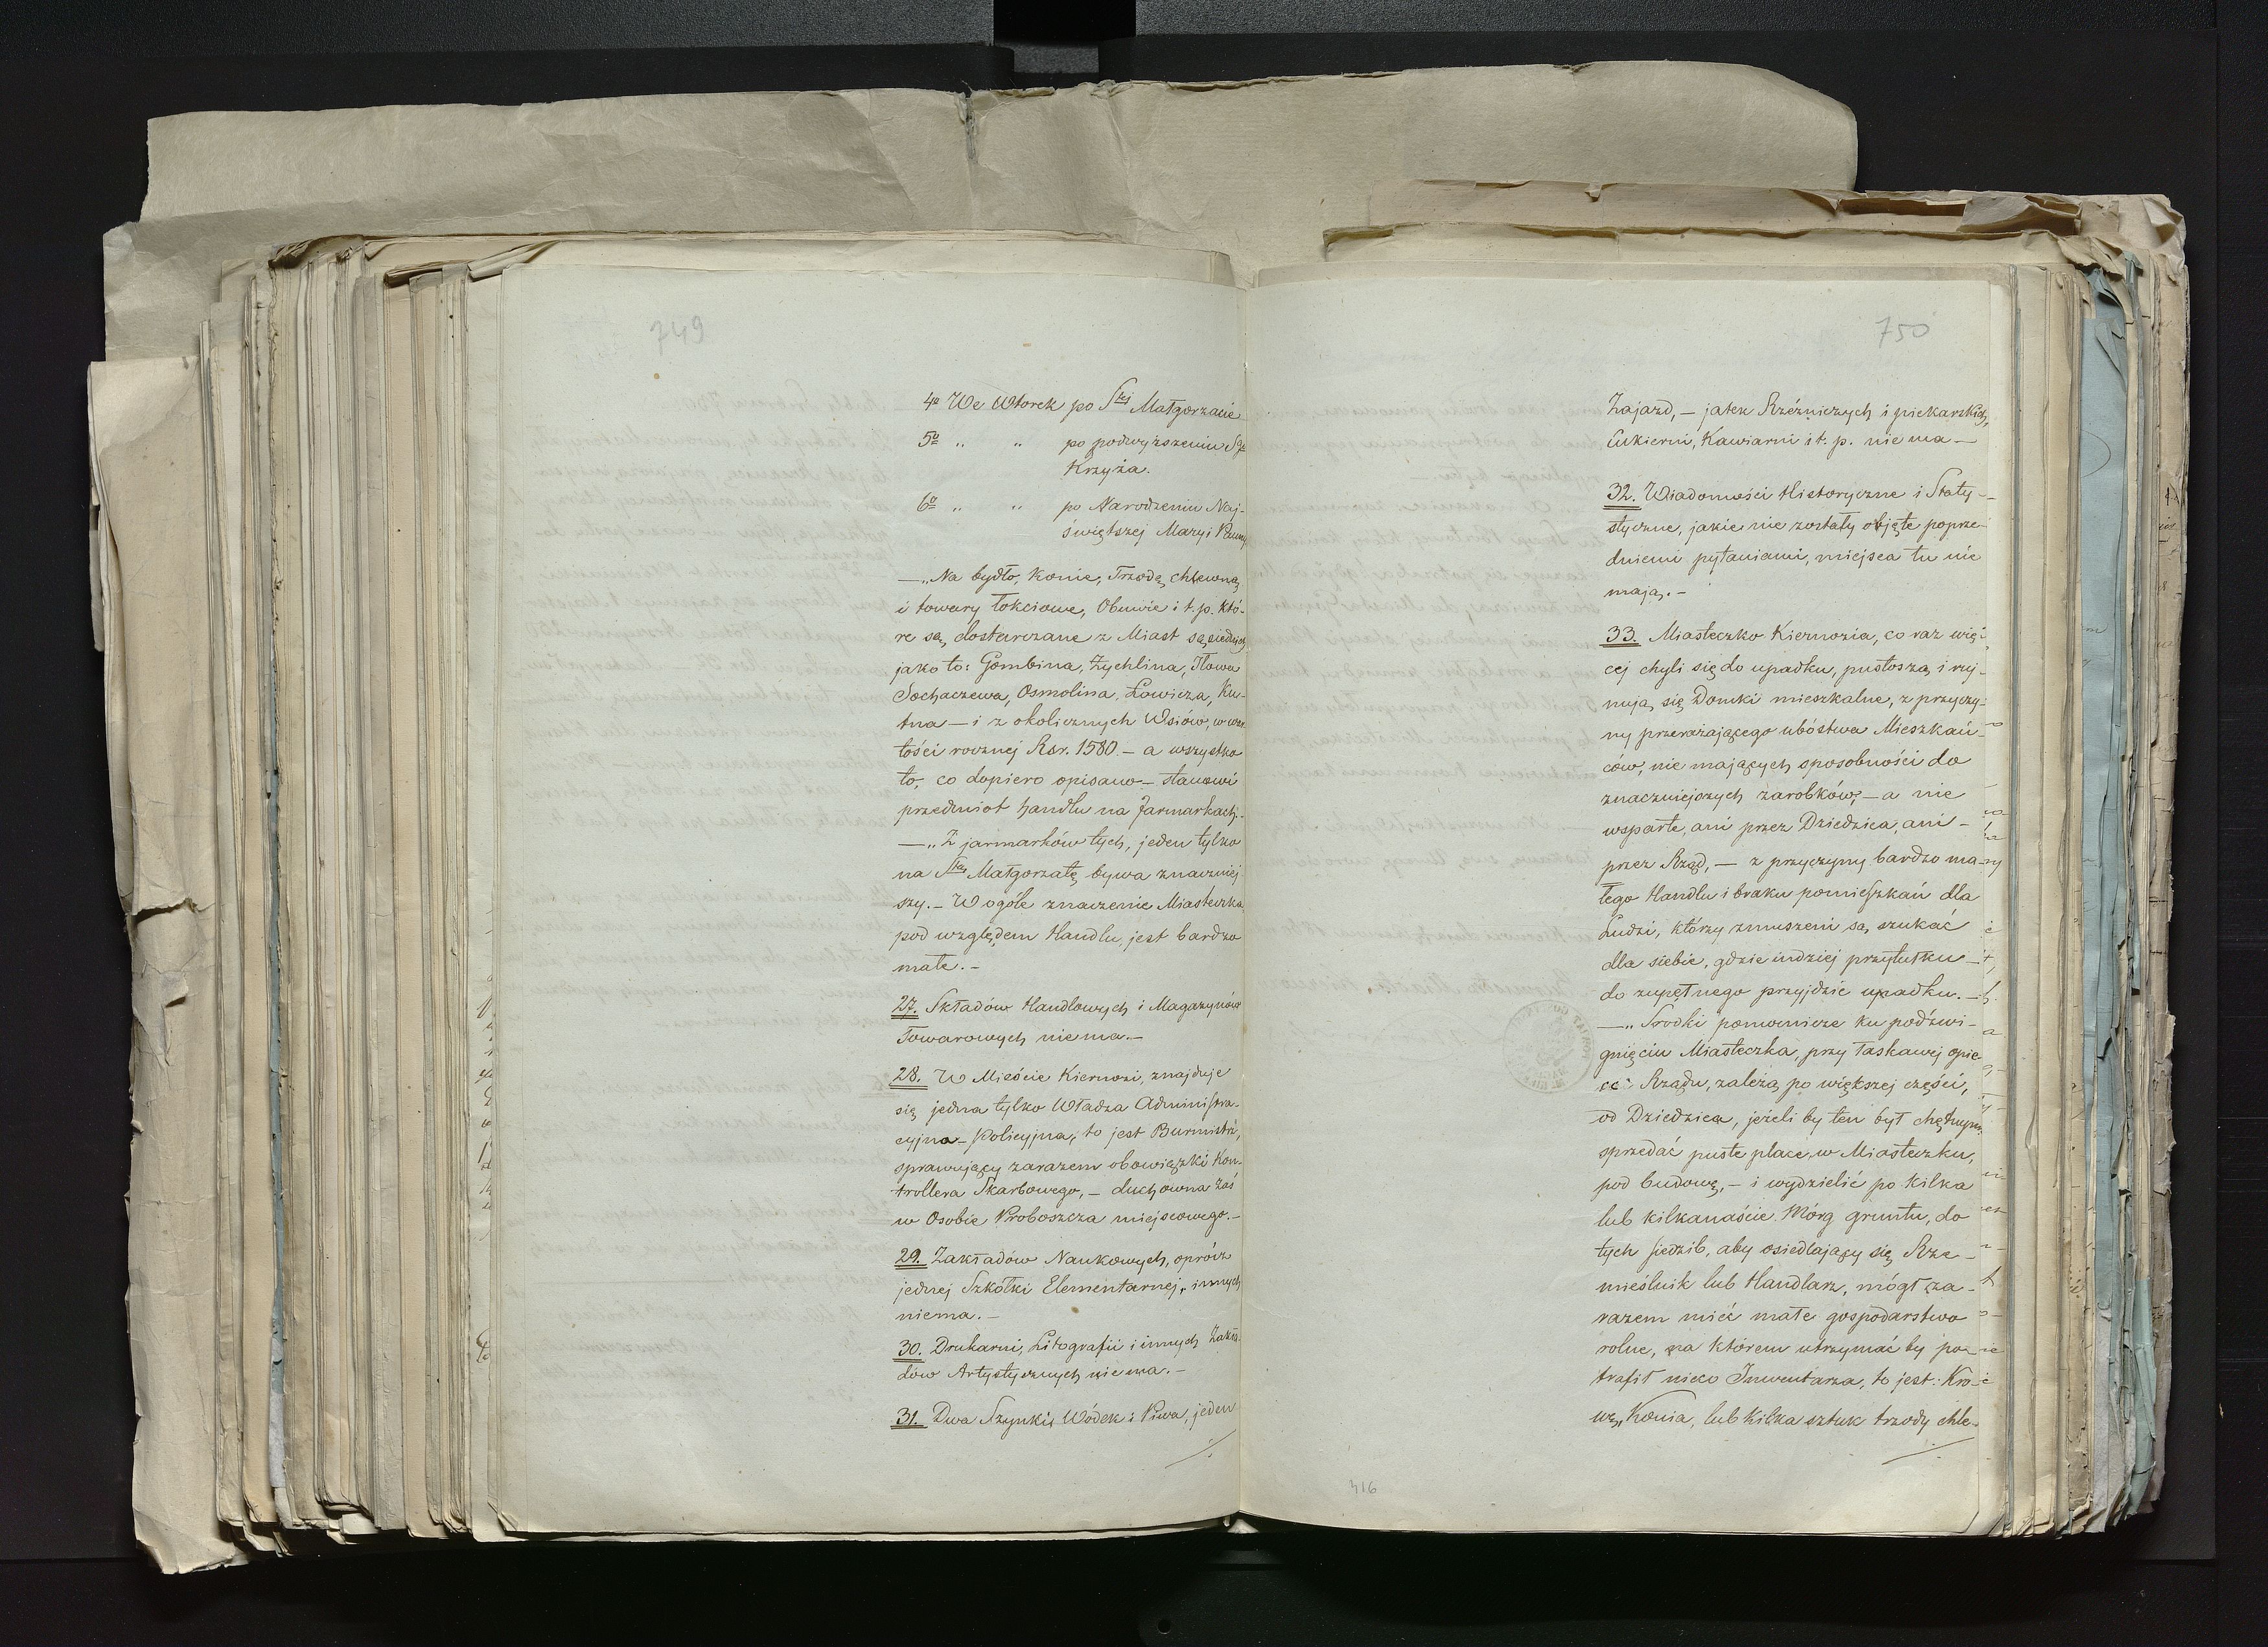 749
4º We Wtorek po Stej Małgorzacie
5º " " po podwyższeniu Sgo
Krzyża.
6º " " po Narodzeniu Naj-
świętszej Maryi Panny
—„Na bydło, Konie, Trzodę chlewną
i towary łokciowe, Obuwie i t. p. któ-
re są, dostarczane z Miast sąsiednich
jako to: Gombina, Żychlina, Iłowa
Sochaczewa, Osmolina, Łowicza, Ku-
tna — i z okolicznych Wsiów, w war-
tości rocznej Rsr. 1580 — a wszystko
to, co dopiero opisano — stanowi
przedmiot handlu na Jarmarkach.
—„Z jarmarków tych, jeden tylko
na Stą Małgorzatę bywa znaczniej
szy. — W ogóle znaczenie Miasteczka
pod względem Handlu, jest bardzo
małe. —
27. Składów Handlowych i Magazynów
Towarowych niema. —
28. W Mieście Kiernozi, znajduje
się jedna tylko Władza Administra-
cyjna — Policyjna, to jest Burmistrz,
sprawujący zarazem obowiązki Kon-
trollera Skarbowego, — duchowna zaś
w Osobie Proboszcza miejscowego. —
29. Zakładów Naukowych, oprócz
jednej Szkółki Elementarnej, innych
niema. —
30. Drukarni, Litografii i innych Zakła-
dów Artystycznych niema. —
31. Dwa Szynki, Wódek i Piwa, jeden
750
Zajazd, — jatek Rzéźniczych i piekarskich,
Cukierni, Kawiarni i t. p. niema —
32. Wiadomości Historyczne i Staty-
styczne, jakie nie zostały objęte poprze-
dniemi pytaniami, miejsca tu nie
mają. —
33. Miasteczko Kiernozia, co raz wię-
cej chyli się do upadku, pustoszą i ruj-
nują się Domki mieszkalne, z przyczy-
ny przerażającego ubóstwa Mieszkań-
ców, nie mających sposobności do
znaczniejszych zarobków, — a nie
wsparte, ani przez Dziedzica, ani —
przez Rząd, — z przyczyny bardzo ma-
łego Handlu i braku pomieszkań dla
Ludzi, którzy zmuszeni są szukać
dla siebie, gdzie indziej przytułku —
do zupełnego przyjdzie upadku. —
—„Srodki pomocnicze ku podźwi-
gnięciu Miasteczka, przy łaskawej opie
ce Rządu, zależą po większej części,
od Dziedzica, jeżeli by ten był chętnym
sprzedać puste place w Miasteczku,
pod budowę, — i wydzielić po kilka
lub kilkanaście Mórg gruntu, do
tych siedzib, aby osiedlający się Rze-
mieślnik lub Handlarz, mógł za-
razem mieć małe gospodarstwo
rolne, na którem utrzymać by po-
trafił nieco Inwentarza, to jest: Kro-
wę, Konia, lub kilka sztuk trzody chle-
416